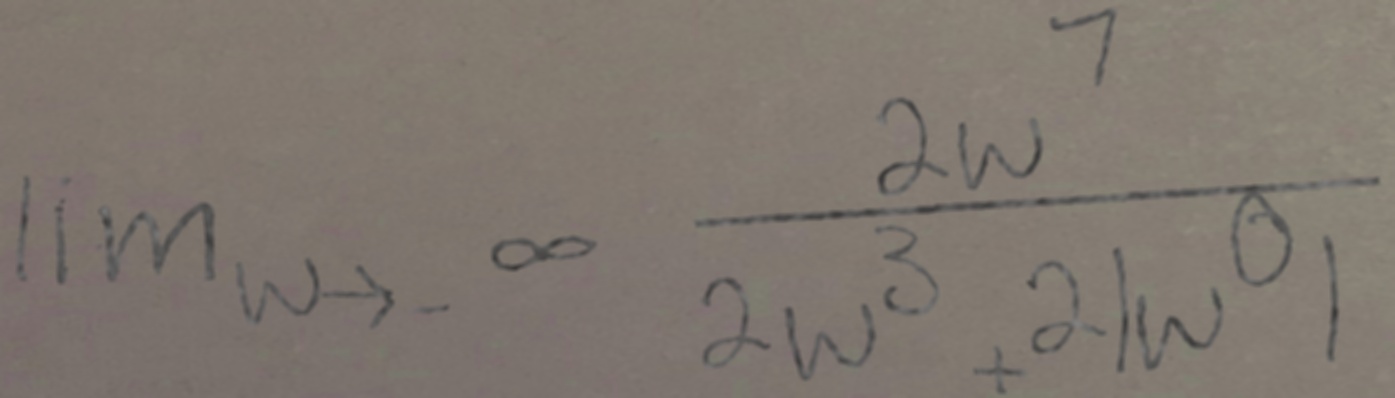 lim_{w→-∞} \frac{2w^7}{2w^3+2|w^0|}